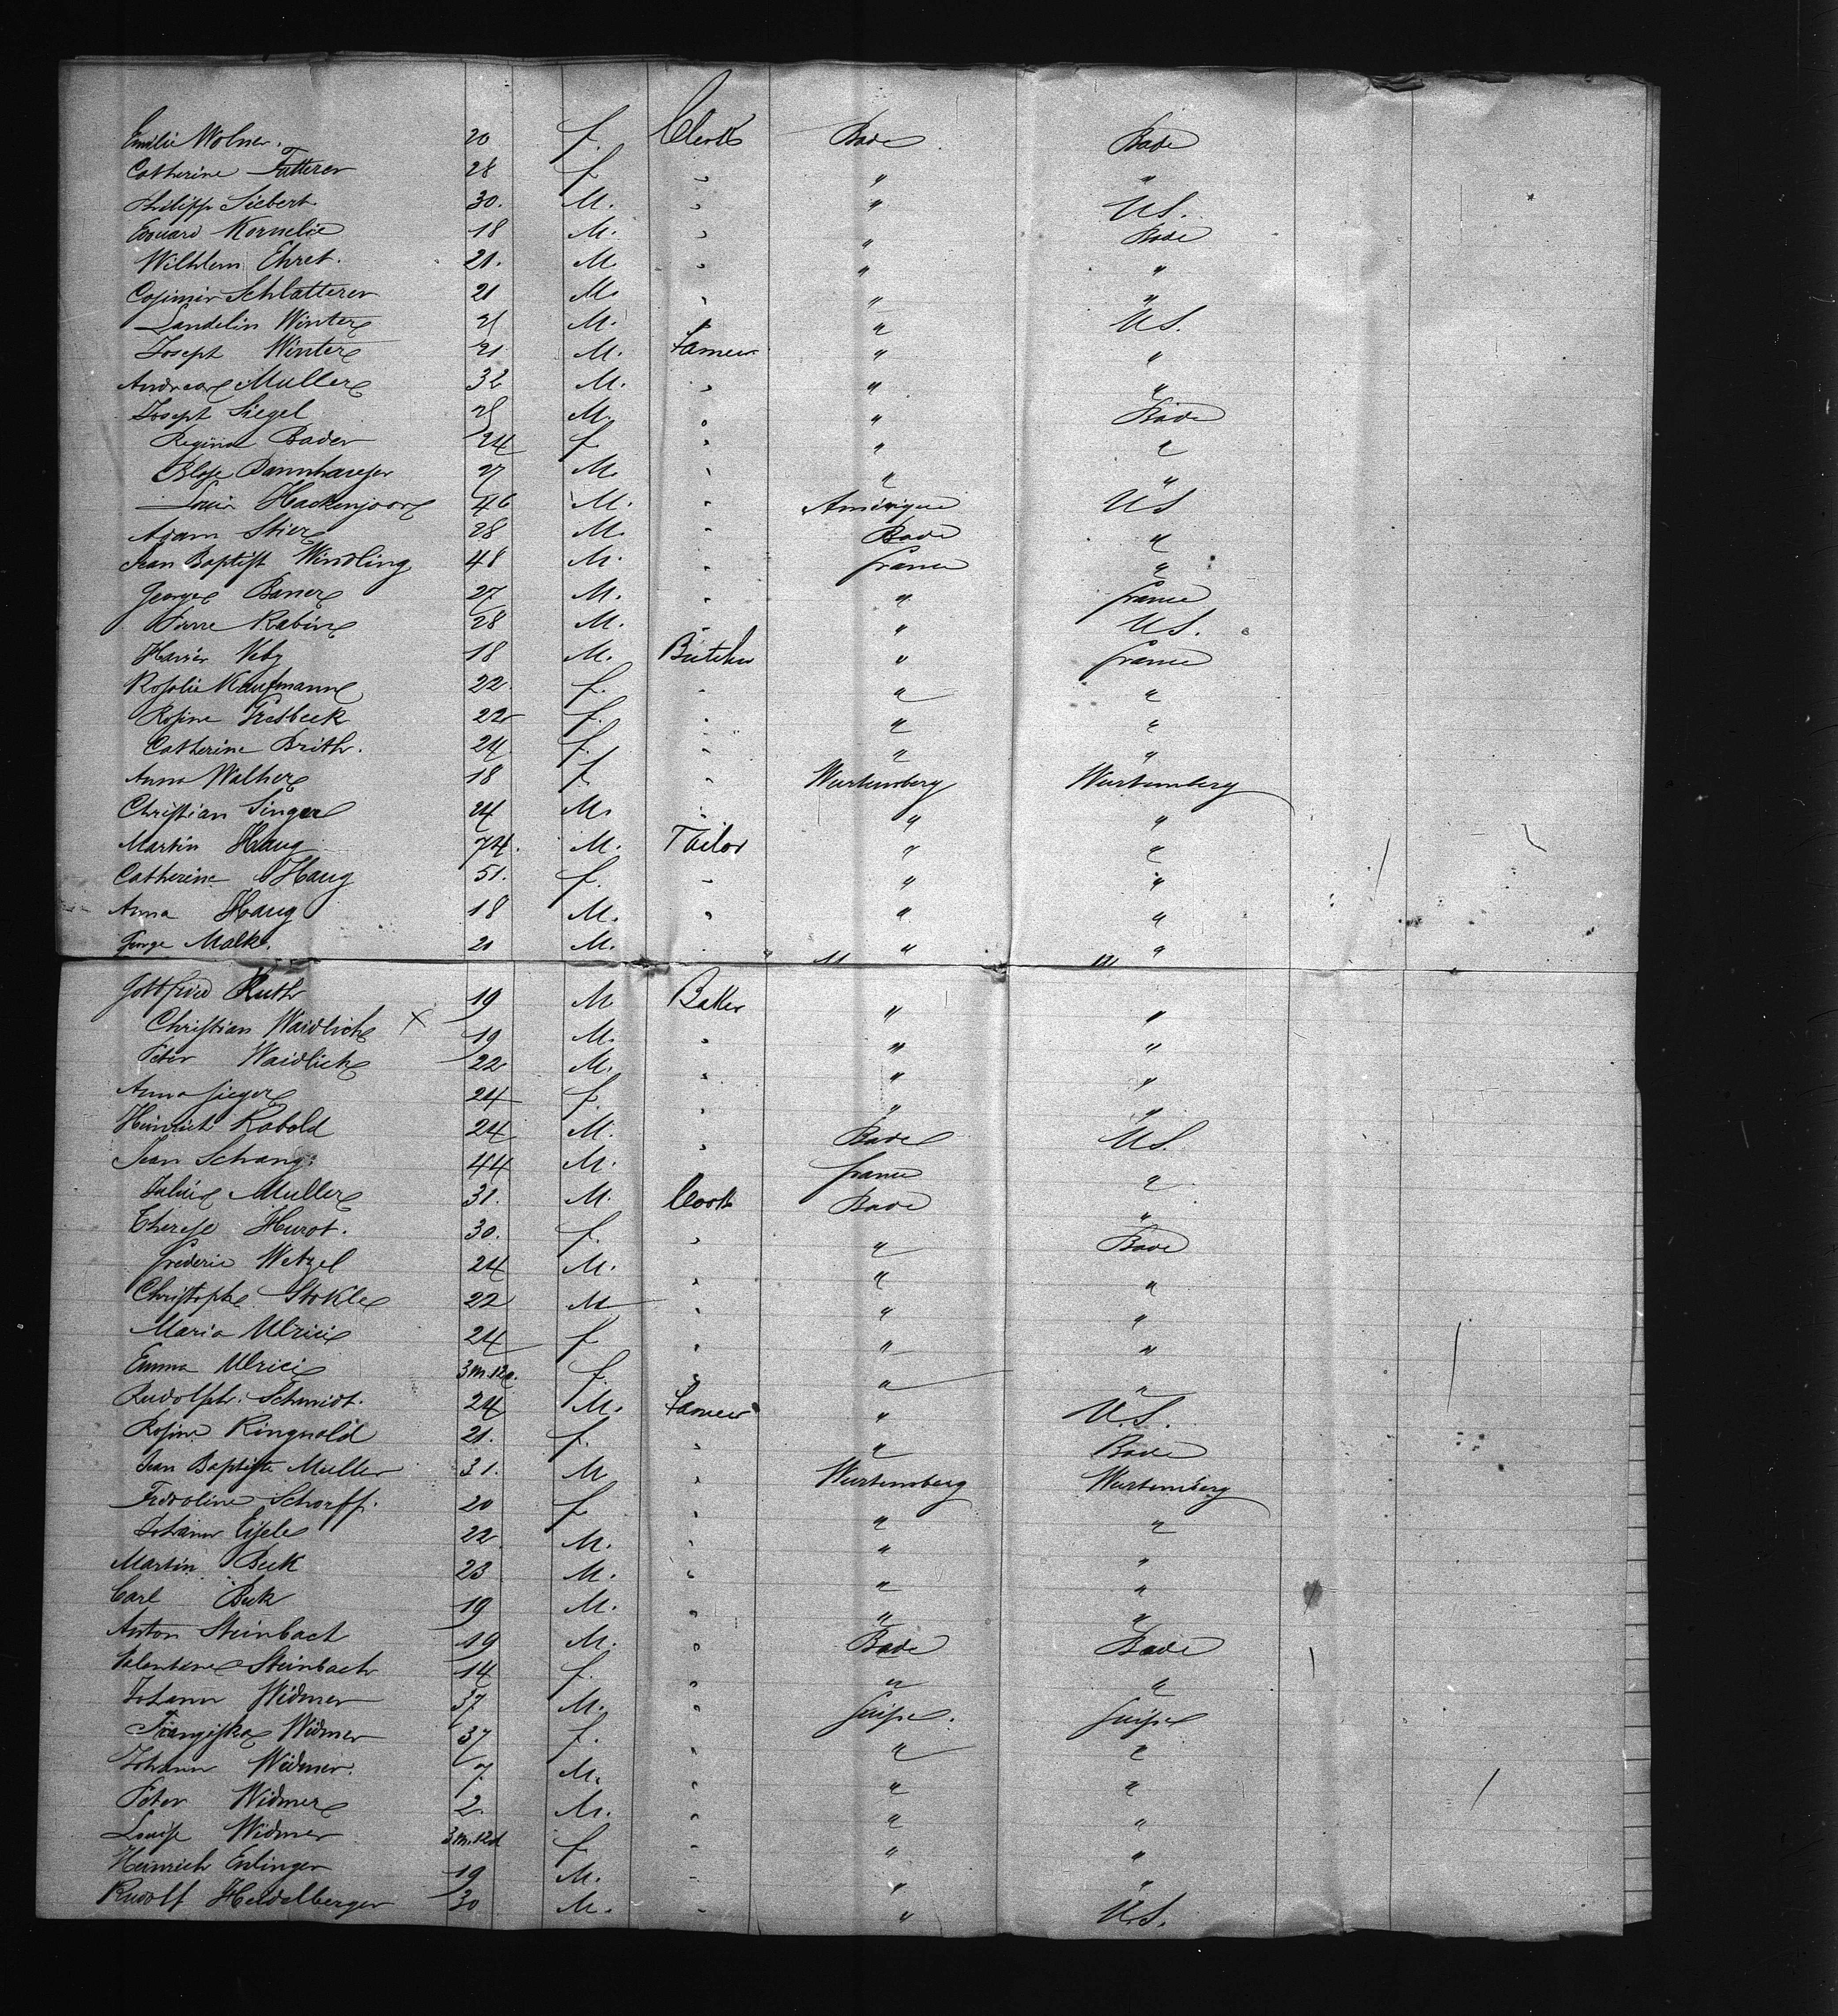 Emilie Wolner. 20 f. Clerk Bade Bade
Catherine Fatterer 28 f " " "
Philipp Siebert. 30. M. " " U.S.
Edouard Kornelie 18 M. " " Bade
Wilhlem Ehret. 21. M " " "
Casimir Schlatterer 21 M. " " "
Landelin Winter 21 M. " " U.S.
Joseph Winter 21 M. Famer " "
Andreas Muller 32 M. " " "
Joseph Siegel 28 M. " " Bade
Regina Bader 24 f " " "
Blase Dannhauser 27 M. " " "
Louis Hackenjoos 46 M. " Amérique US
Adam Stier 28 M. " Bade "
Jean Baptist Windling 48 M. " france "
George Baner 27 M. " " france
Pierre Rabine 28 M. " " U.S.
Xavier Veby 18 M. Butcher " france
Rosalie Kaufmann 22. f. " " "
Rosine Gresbeck 22 f. " " "
Catherine Brith. 24 f. " " "
Anna Walher 18 f " Wurtemberg Wurtemberg
Christian Singer 24 M. " " "
Martin Haug 74. M. Tailor " "
Catherine Haug 51. f. " " "
Anna Haug 18 M. " " "
George Malk. 21 M. " " "
Gottfried Kuth 19 M Baker " "
Christian Waidlich x 19 M. " " "
Peter Waidlich 22 M. " " "
Anna Jieger 24 f. " " "
Heinrich Kabold 24 M. " Bade U.S.
Jean Schang. 44 M. " france "
Julius Muller 31. M. Cook Bade "
Therese Hurot. 30. f. " " Bade
frederic Wetzel 24 M. " " "
Christophe Stokle 22 M " " "
Maria Ulrici 24 f " " "
Emma Ulrici 3m.12d. f. " " "
Rudolph. Schmidt. 24 M. Famer " U.S.
Rosine Ringwald 21. f. " " Bade
Jean Baptiste Muller 31. M " Wurtemberg Wurtemberg
Fridoline Schorff. 20 f " " "
Johann Eisele 22 M. " " "
Martin Beck 23 M. " " "
Carl Beck 19 M. " " "
Anton Steinbach 19 M. " Bade Bade
Valentine Steinbach 14 f. " " "
Johann Widmer 37 M. " suisse. suisse
Franziska Widmer 37 f. " " "
Johann Widmer. 7 M. " " "
Peter Widmer 2. M. " " "
Louise Widmer 3m.12d f " " "
Heinrich Erlinger 19 M. " " "
Rudolf Heidelberger 30 M. " " U.S.